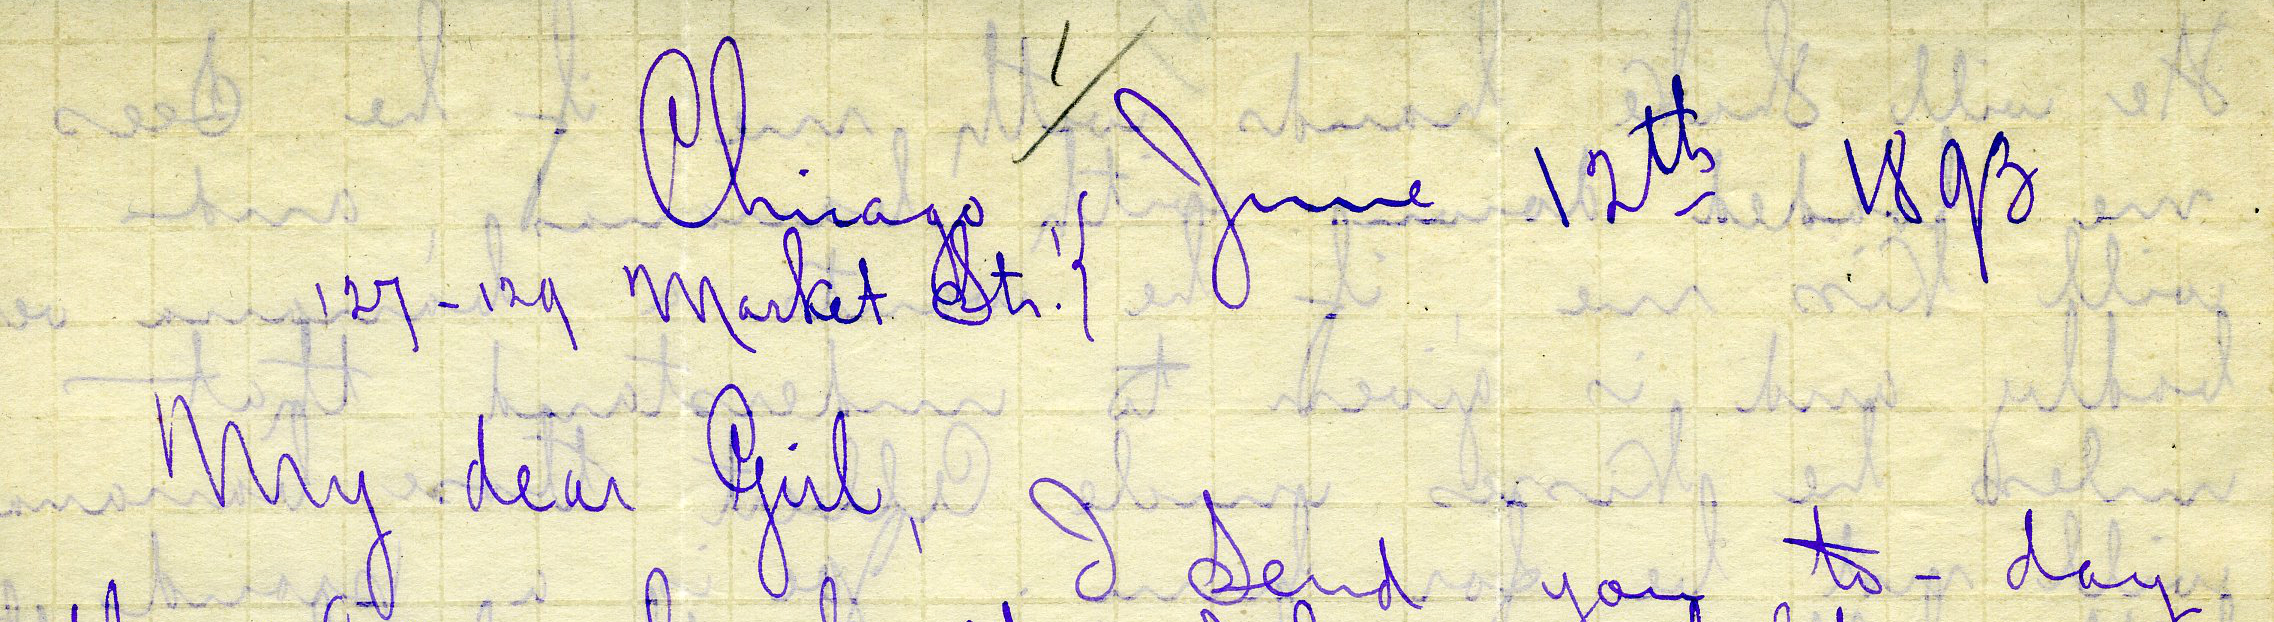 1/
Chicago, June 12th 1893
127-129 Market Str.
My dear Girl,
I send you to-day